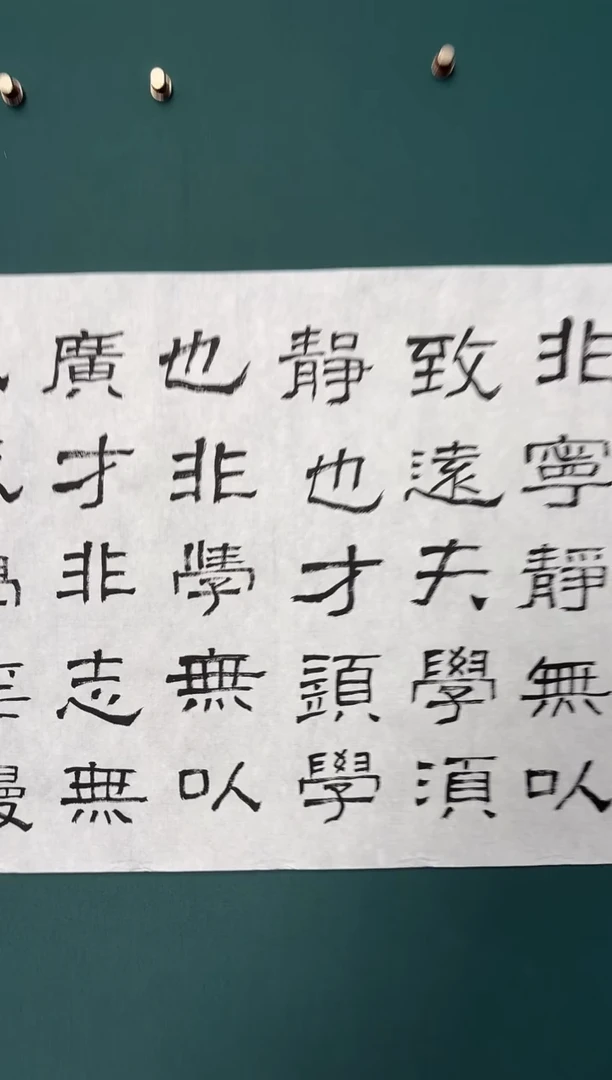 非寧靜無以
致遠夫學須
靜也才須學
也非學無以
廣才非志無